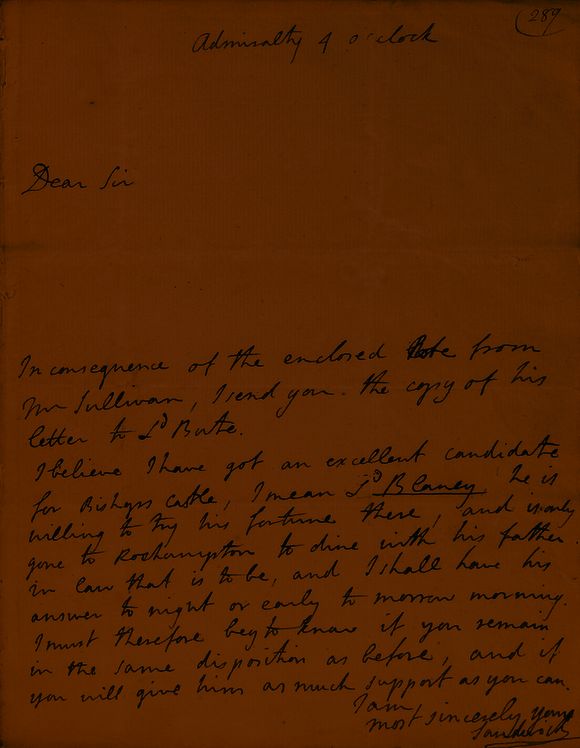 289
Admiralty 4 o'clock
Dear Sir
In consequence of the enclosed Note from
Mr Sullivan, I send you the copy of his
letter to Ld Bute.
I believe I have got an excellent candidate
for Bishops Castle, I mean Ld Blaney he is
willing to try his fortune there, and is only
gone to Roehampton to dine with his father
in law that is to be, and I shall have his
answer to night or early to morrow morning.
I must therefore beg to know if you remain
in the same disposition as before, and if
you will give him as much support as you can.
I am
most sincerely yours
Sandwich